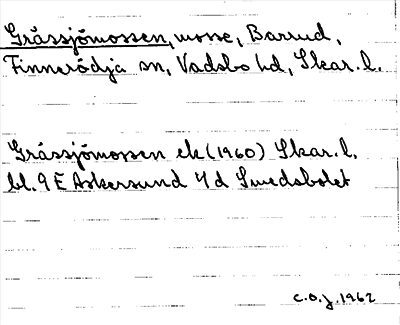 Gråssjömossen, mosse, Barrud,
Finnerödja sn, Vadsbo hd, Skar. l.
Gråssjömossen ek (1960) Skar. l.
bl. 9 E Askersund 4 d Svedsbolet
C.O.J. 1962